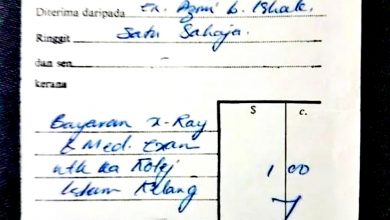 Diterima daripada En. Azmi b. Ishak.
Ringgit Satu Sahaja.
dan sen
kerana
$ c.
Bayaran X-Ray
& Med. Exam
utk ke Kolej 1 00
Islam Kelang